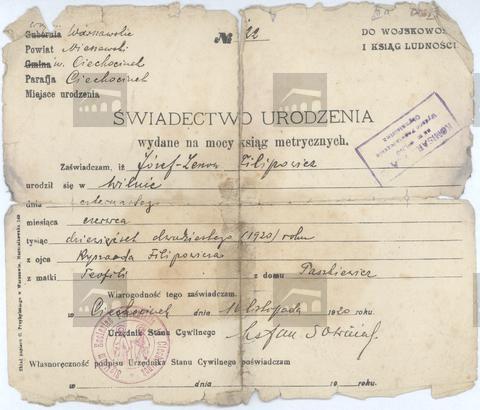 Gubernia Warszawskie № 22 DO WOJSKOWOŚ
Powiat Nieszawski I KSIĄG LUDNOŚCI
Gmina w. Ciechocinek
Parafja Ciechocinek
Miejsce urodzenia
ŚWIADECTWO URODZENIA
wydane na mocy ksiąg metrycznych.
Zaświadczam, iż Józef-Zenon Filipowicz
urodził się w Wilnie
dnia czternastego
miesiąca czerwca
tysiąc dziewięćset dwudziestego (1920) roku
z ojca Ryszarda Filipowicza
z matki Teofili z domu Paszkiewicz
Wiarogodność tego zaświadczam.
w Ciechocinek dnia 16 listopada 1920
Urzędnik Stanu Cywilnego
Własnoręczność podpisu Urzędnika Stanu Cywilnego poświadczam
w dnia 19 roku.
Skład papieru C. Przybylskiego w Warszawie, Marszałkowska 140
KOMISARZ